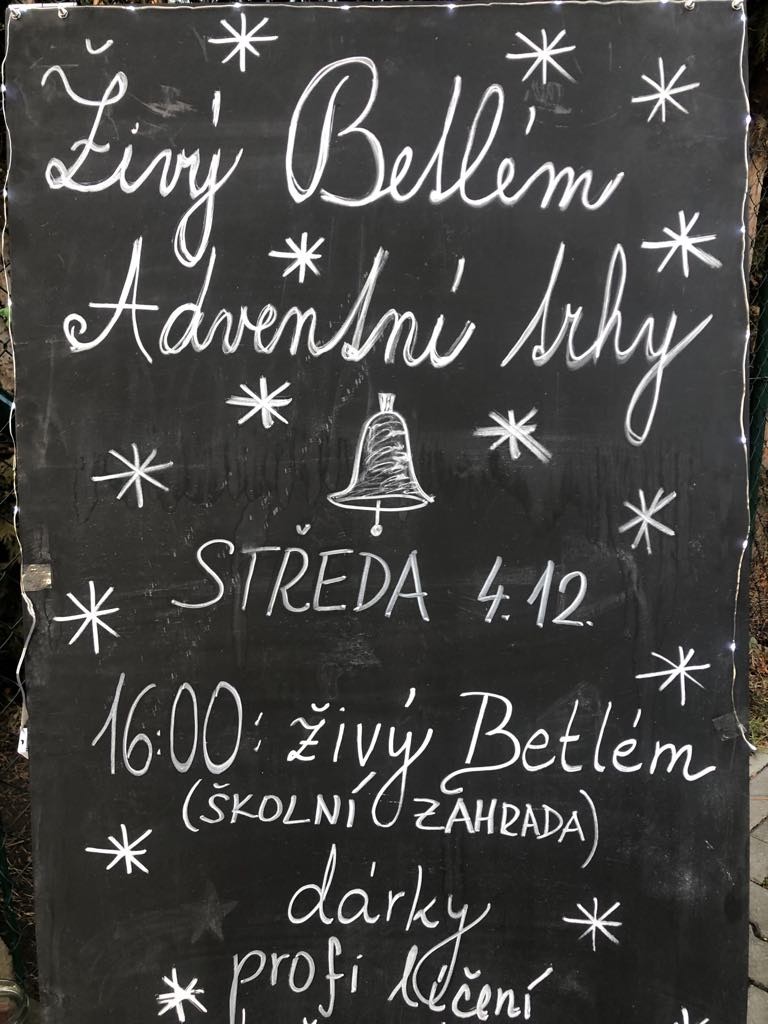 Živý Betlém
Adventní trhy
STŘEDA 4.12.
16:00: živý Betlém
(ŠKOLNÍ ZAHRADA)
dárky
profi líčení